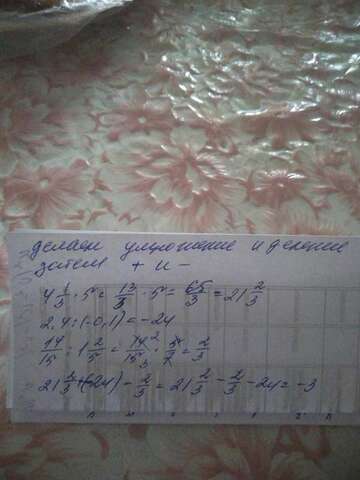 делаем умножение и деление
затем + и -
4 1/3 · 5 = 13/3 · 5 = 65/3 = 21 2/3
2,4 : (-0,1) = -24
14/15 : 1 2/5 = 14²/15₃ · 5/7 = 2/3
21 2/3 + (-24) - 2/3 = 21 2/3 - 2/3 - 24 = -3